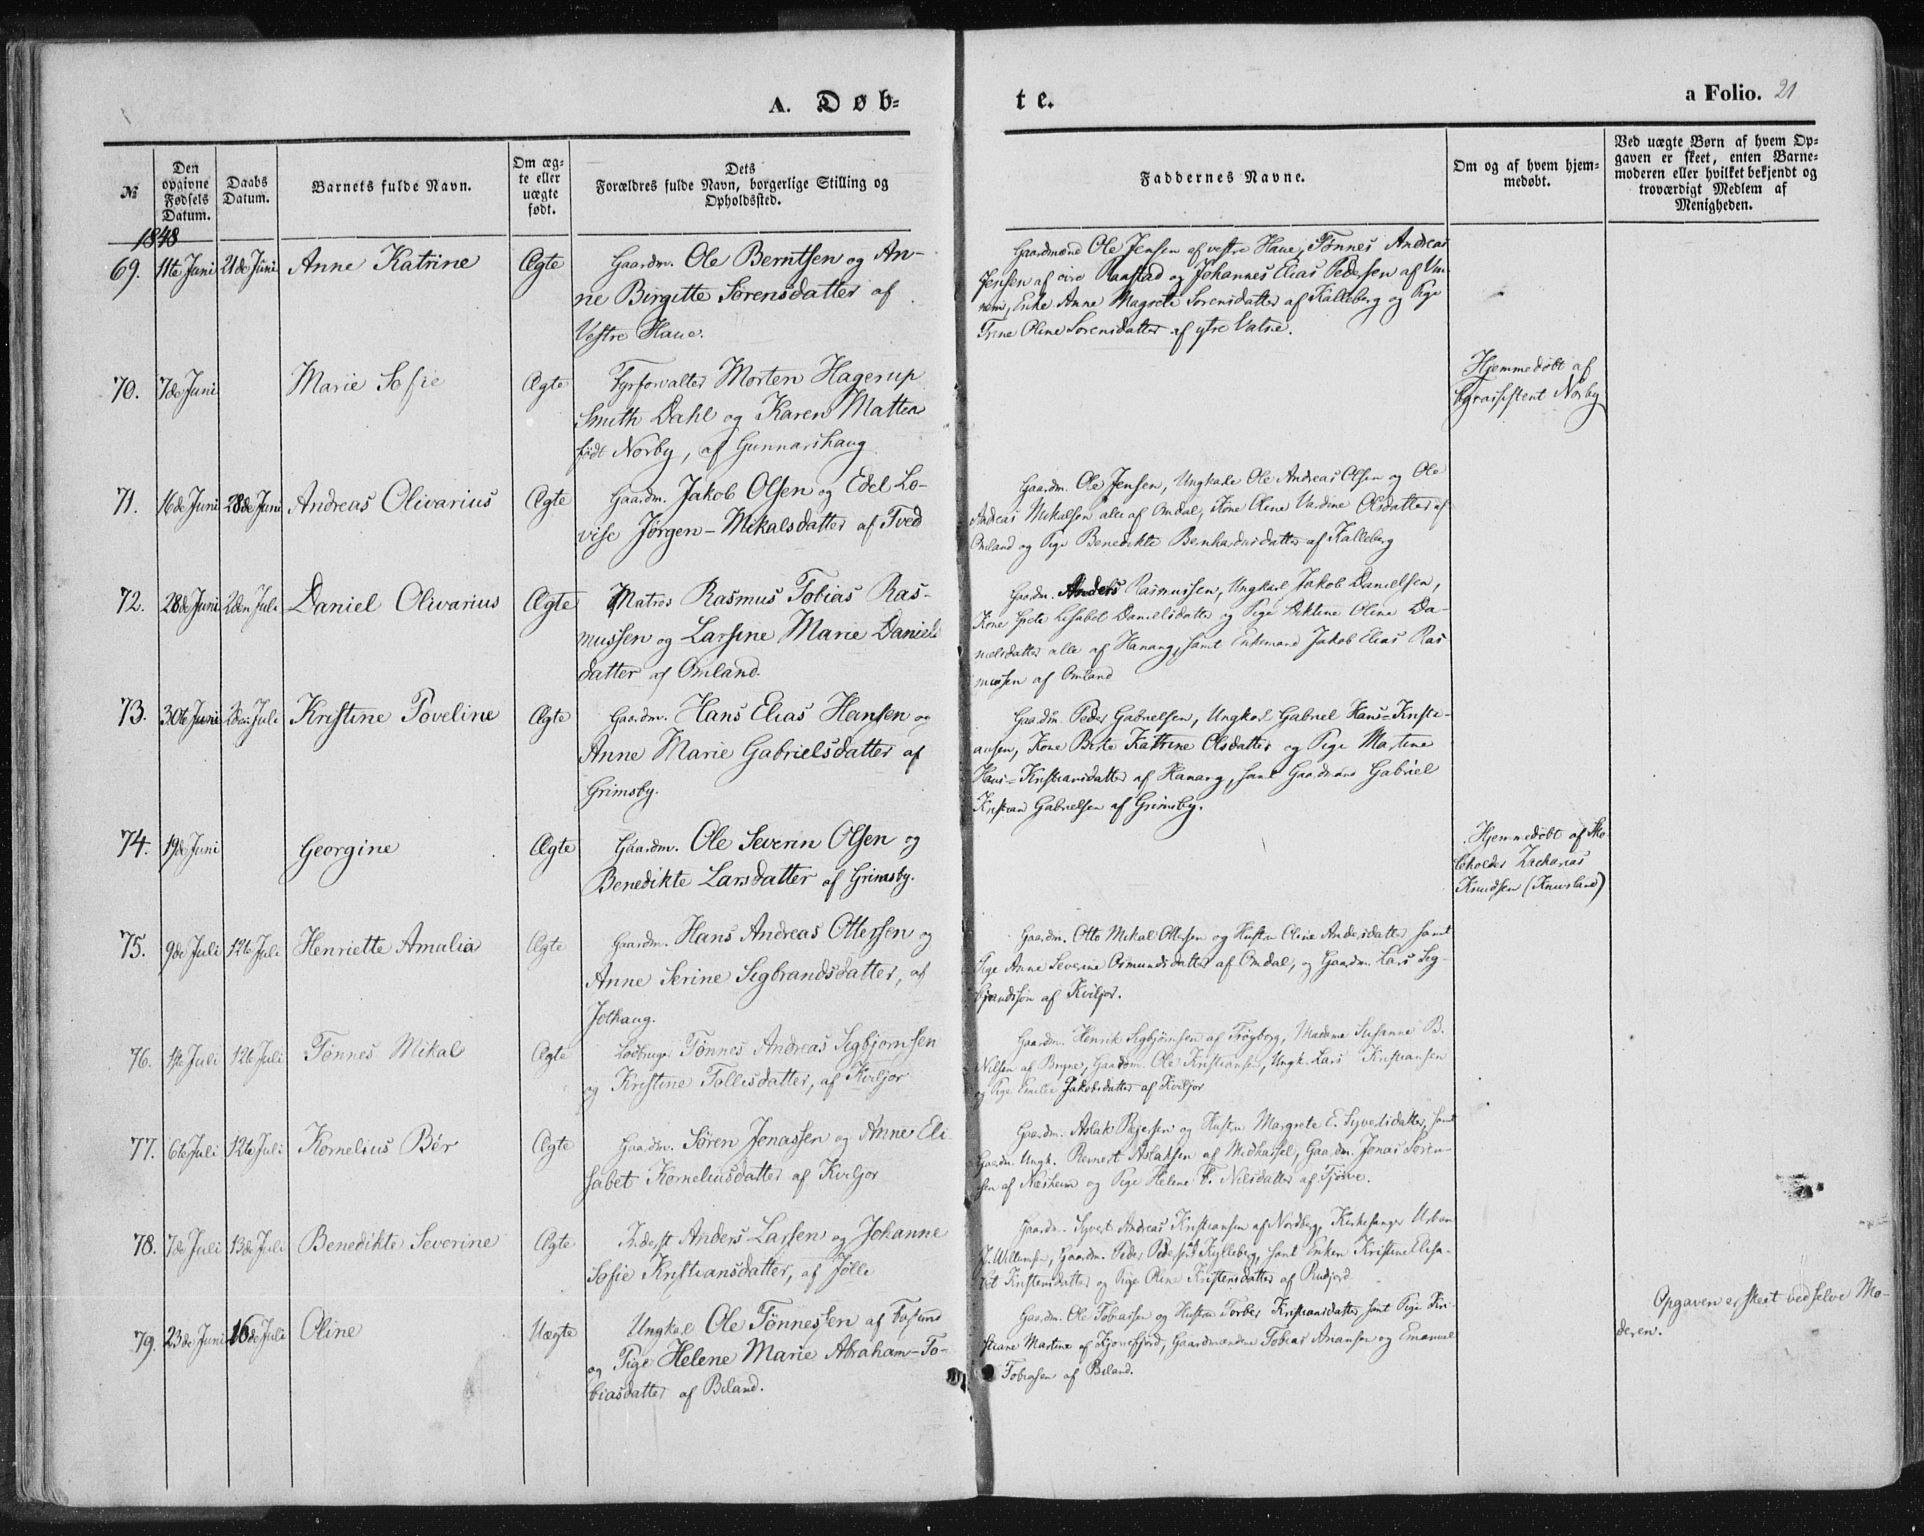 A. Døb-
te.
a Folio. 21
№
Den opgivne Fødsels Datum.
Daabs Datum.
Barnets fulde Navn.
Om ægte eller uægte født.
Dets Forældres fulde Navn, borgerlige Stilling og Opholdssted.
Faddernes Navne.
Om og af hvem hjemmedøbt.
Ved uægte Børn af hvem Opgaven er skeet, enten Barnemoderen eller hvilket bekjendt og troværdigt Medlem af Menigheden.
1848
69. 11te Juni 21de Juni Anne Katrine Ægte Gaardm. Ole Berntsen og An-
ne Birgitte Sørensdatter af
Vestre Haue.
Gaardmænd Ole Jensen af vestre Haue, Tønnes Andreas
Jensen af øvre Ranstad og Johannes Elias Pedersen af Van
nem, Enke Anne Magrete Sørensdatter af Kalleberg og Pige
Trine Oline Sørensdatter af ytre Vatne.
70. 7de Juni Marie Sofie Ægte Fyrforvalter Morten Hagerup
Smith Dahl og Karen Mattea
født Norby, af Gunnarshaug
Hjemmedøbt af
Norby
71. 16de Juni 28de Juni Andreas Olivarius Ægte Gaardm. Jakob Olsen og Edel Lo-
vise Jørgen-Mikalsdatter af Tved
Gaardm. Ole Jensen, Ungkarle Ole Andreas Olsen og Ole
Andreas Mikalsen alle af Omdal, Kone Oline Vardine Olsdatter af
Omland og Pige Benedikte Bernhardusdatter af Kalleberg
72. 28de Juni 2den Juli Daniel Olivarius Ægte Matros Rasmus Tobias Ras-
mussen og Larsine Marie Daniels
datter af Omland.
Gaardm. Anders Rasmussen, Ungkarl Jakob Danielsen,
Kone Grete Lisabet Danielsdatter og Pige Oline Da-
nielsdatter alle af Hanang, samt Enkemand Jakob Elias Ras
mussen af Omland
73. 30te Juni 2den Juli Kristine Poveline Ægte Gaardm. Hans Elias Hansen og
Anne Marie Gabrielsdatter af
Grimsby.
Gaardm. Peder Gabrielsen, Ungkarl Gabriel Hans-Kristi-
ansen, Kone Berte Katrine Olsdatter og Pige Martine
Hans-Kristiansdatter af Hanang, samt Gaardmand Gabriel
Kristian Gabrielsen af Grimsby.
74. 19de Juni Georgine Ægte Gaardm. Ole Severin Olsen og
Benedikte Larsdatter af Grimsby.
Hjemmedøbt af Sko-
leholder Zacharias
Knudsen (Knivsland)
75. 9de Juli 12te Juli Henriette Amalia Ægte Gaardm. Hans Andreas Ottersen og
Anne Serine Sigbrandsdatter, af
Jothaug.
Gaardm. Otto Mikal Ottersen og Hustru Oline Andersdatter samt
Pige Anne Severine Osmundsdatter af Omdal, og Gaardm. Lars Sig-
brandsson af Kviljor.
76. 1ste Juli 12te Juli Tønnes Mikal Ægte Løsbruger Tønnes Andreas Sigbjørnsen
og Kristine Tollisdatter, af Kviljor
Gaardm. Henrik Sigbjørnsen af Frøyborg, Madame Susanne B.
Nilsen af Bryne, Gaardm. Ole Kristiansen, Ungk. Lars Kristiansen
og Pige Emilie Jakobsdatter af Kviljor
77. 6te Juli 12te Juli Kornelius Bér Ægte Gaardm. Søren Jonassen og Anne Eli-
sabet Korneliusdatter af Kviljor
Gaardm. Aslak Reiersen og Hustru Margrete E. Syvertsdatter, samt
Gaardm. Ungk. Reinert Aslaksen af Midhassel, Gaardm. Jonas Søren-
sen af Næsheim og Pige Helene F. Nilsdatter af Tjørve.
78. 7de Juli 13de Juli Benedikte Severine Ægte Inderst Anders Larsen og Johanne
Sofie Kristiansdatter, af Jølle
Gaardm. Syvert Andreas Kristiansen af Nordberg, Kirkesanger Urban
J. Willumsen, Gaardm. Peder Pedersen af Kylleberg, samt Enken Kristine Elisa-
bet Kristensdatter og Pige Oline Kristensdatter af Rudjord
79. 23de Juni 16de Juli Oline Uægte Ungkal Ole Tønnessen af Farsund
og Pige Helene Marie Abraham-To-
biasdatter af Biland.
Gaardm. Ole Tobiassen og Hustru Torber Kristiansdatter, samt Pige Kri-
stiane Martine af Kjørrefjord, Gaardmændene Tobias Anansen og Emanuel
Tobiasen af Biland.
Opgaven er skeet ved selve Mo-
deren.